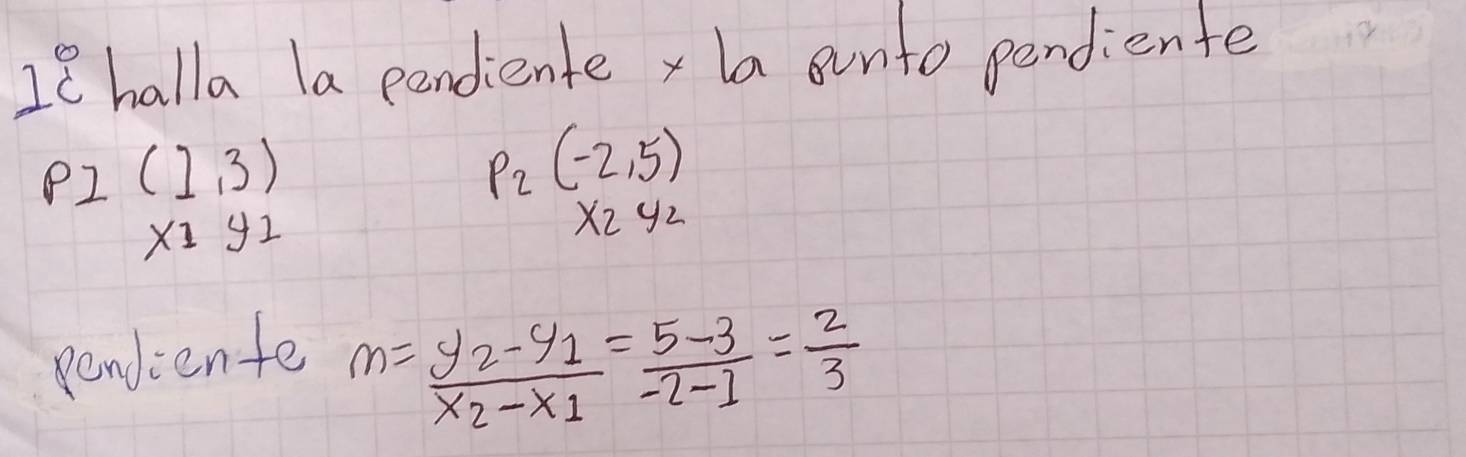 1º halla la pendiente y la punto pendiente
P1 (1,3) P2 (-2,5)
x1 y1 x2 y2
pendiente m = y2-y1/x2-x1 = 5-3/-2-1 = 2/3